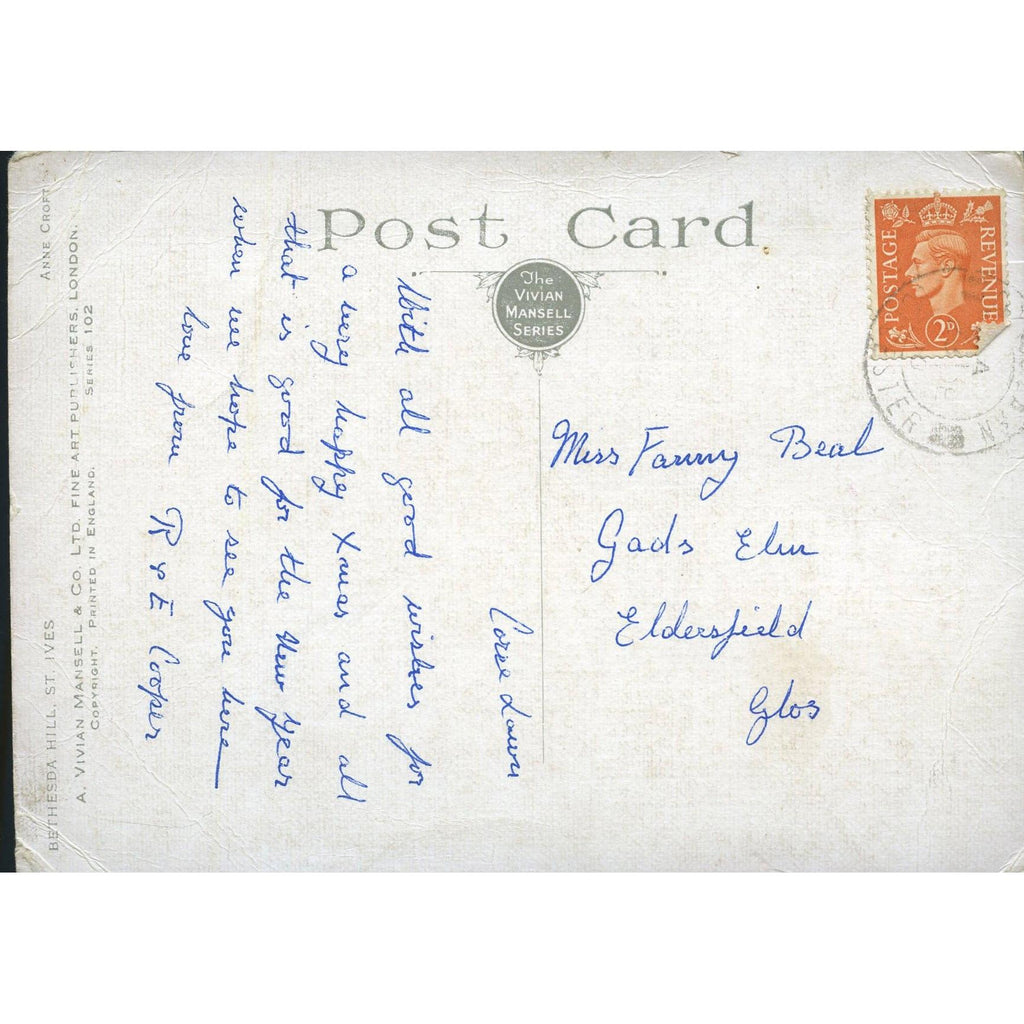 Post Card
The
VIVIAN
MANSELL
SERIES
POSTAGE
REVENUE
2D
Miss Fanny Beal
Gads Elm
Eldersfield
Glos
With all good wishes for
a very happy Xmas and all
that is good for the New Year
when we hope to see you here
love from R & E Cooper
BETHESDA HILL, ST. IVES
ANNE CROFT
A. VIVIAN MANSELL & CO. LTD. FINE ART PUBLISHERS, LONDON.
COPYRIGHT. PRINTED IN ENGLAND.
SERIES 102